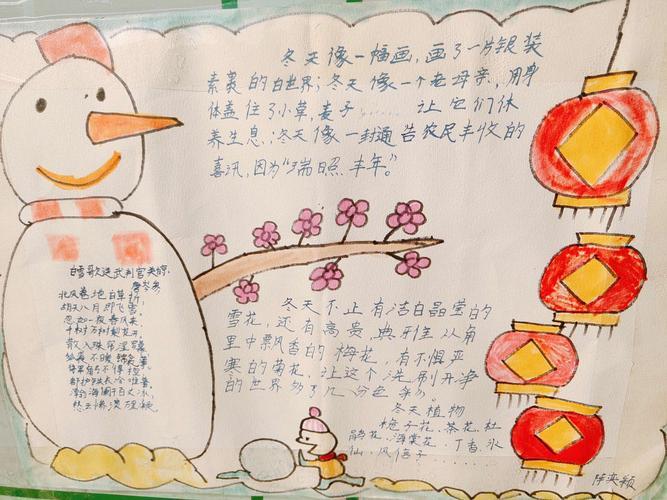 冬天像一幅画，画了一片银装
素裹的白世界；冬天像一个老母亲，用身
体盖住了小草，麦子……让它们休
养生息；冬天像一封通告农民丰收的
喜讯，因为“瑞照丰年。”
白雪歌送武判官
北风卷地白草折，
胡天八月即飞雪。
忽如一夜春风来，
千树万树梨花开。
散入珠帘湿罗幕
狐裘不暖锦衾薄
将军角弓不得控
都护铁衣冷难着
瀚海阑干百丈冰，
愁云惨淡万里凝
冬天不止有洁白晶莹的
雪花，还有高贵，典雅从角
里中飘香的梅花，有不惧严
寒的菊花，让这个洗刷干净
的世界多了几分色
冬天植物
栀子花、茶花、杜
鹃花、海棠花、丁香、水
仙、风信子……